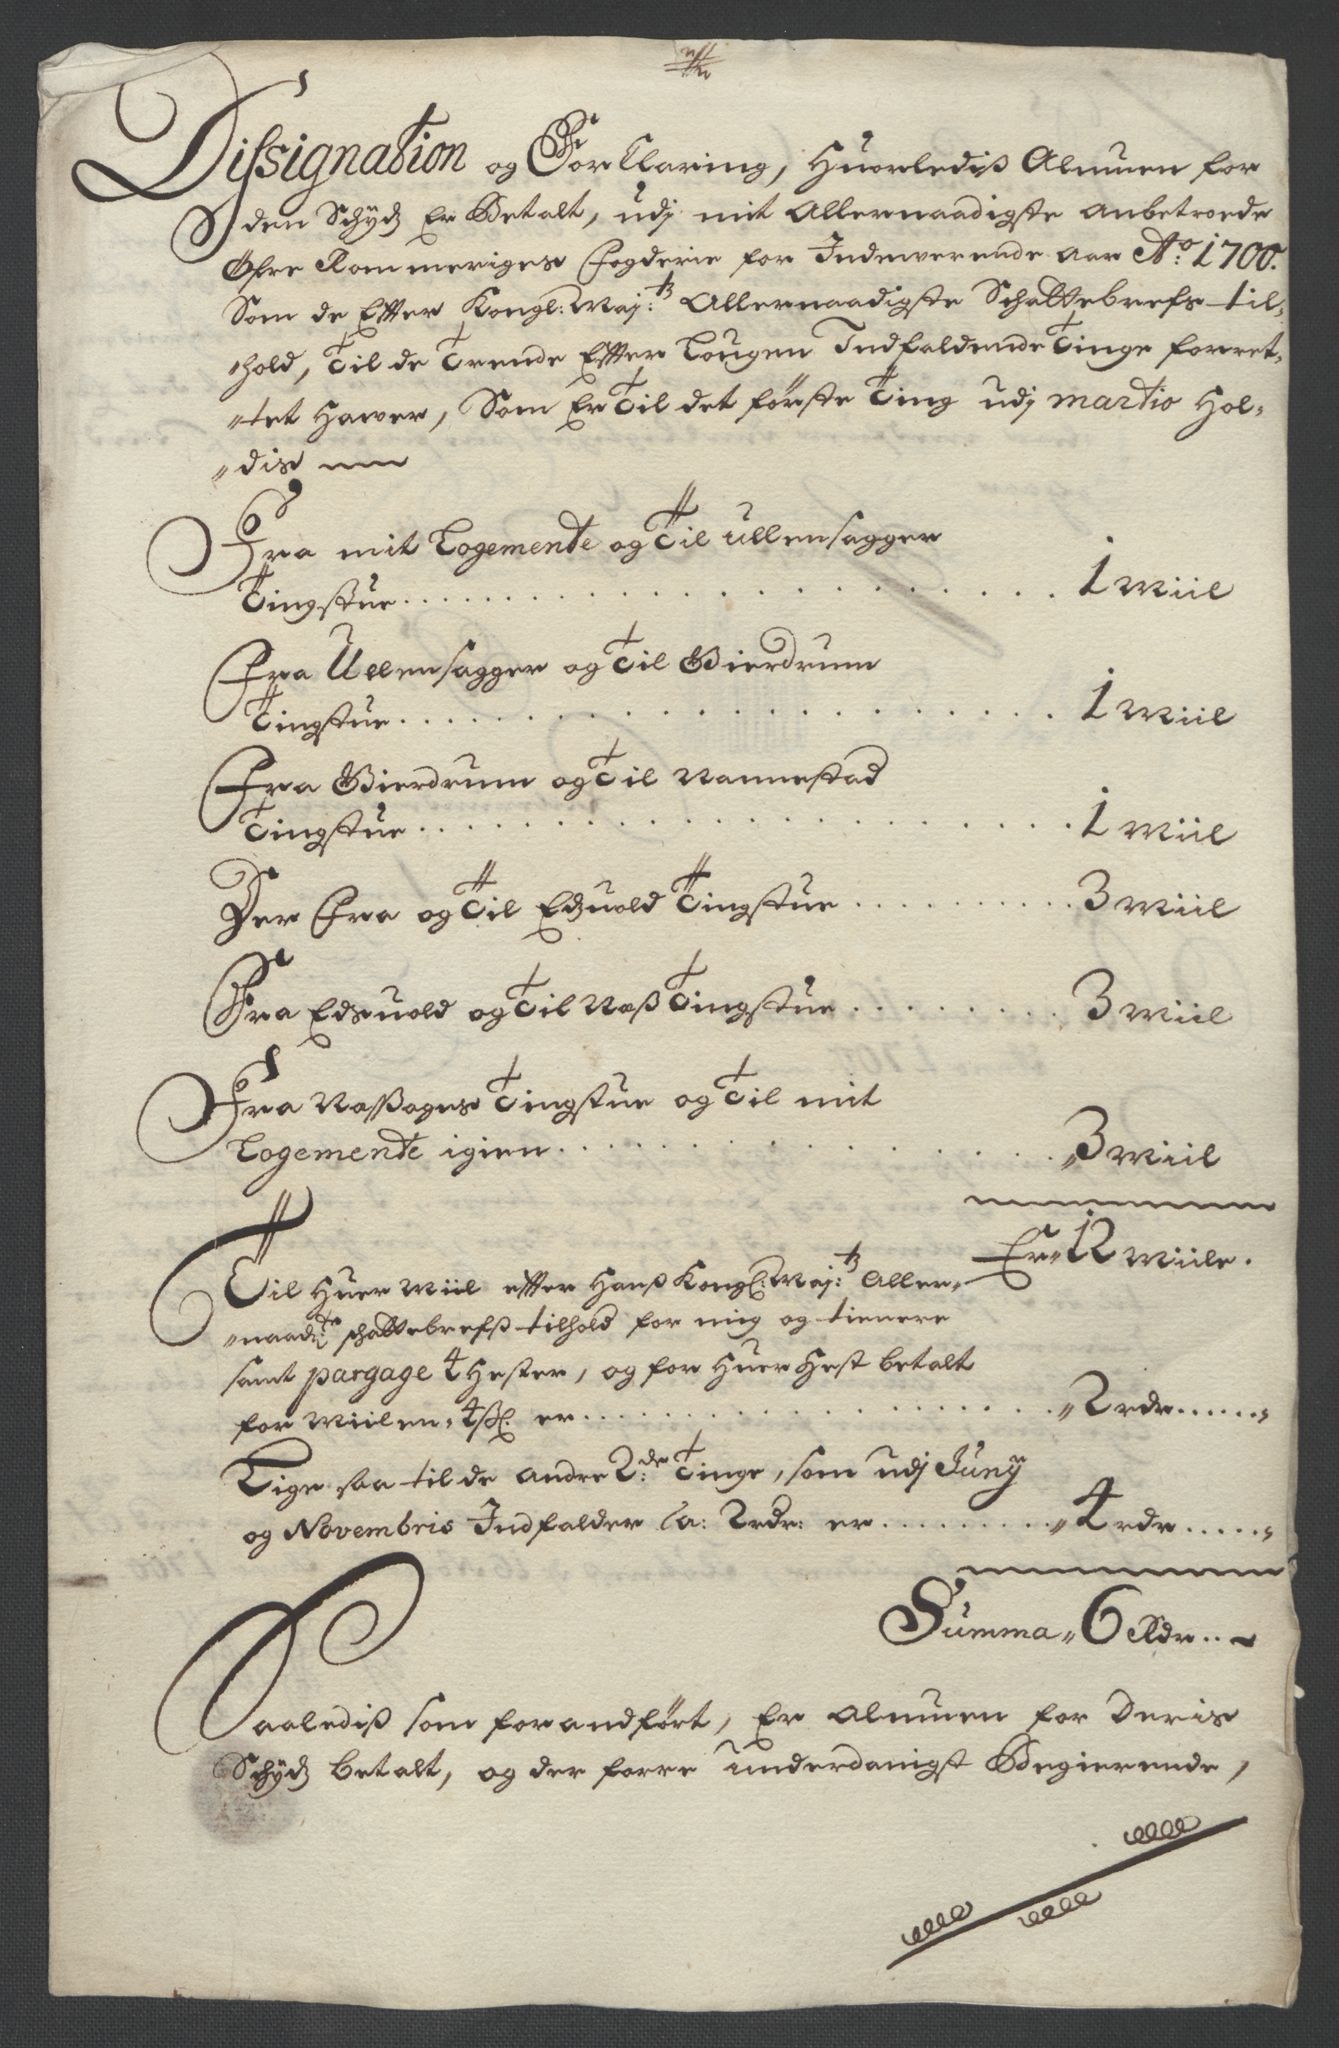 Dissignation og Forklaring, Huorlediss Almuen for
den Schydz Er Betalt, udj mit Allernaadigste Anbetroede
Øfre Rommeriges Fogderie for Indeværende aar Ao: 1700.
Som de Effter Kongl: Maj:ts Allernaadigste Schattebrefs til-
hold, Til de Trende Effter Lougen Indfaldende Tinge forret-
tet Hawer, Som Er Til det første Ting udj Martio Hol-
dis
Fra mit Logemente og Til Ullensagger
Tingstue 1 Miil
Fra Ullensagger og Til Gierdrum
Tingstue 1 Miil
Fra Gierdrum og Til Nannestad
Tingstue 1 Miil
Der Fra og Til Edzuold Tingstue 3 Miil
Fra Edsuold og Til Næss Tingstue 3 Miil
Fra Næssognes Tingstue og Til mit
Logemente igien 3 Miil
Er 12 Miile.
Til Huer Miil effter Hanss Kongl: Maj:ts Aller-
naadigste schattebrefss tilhold for mig og tienere
samt pargage 4 Hester, og for Huer Hest betalt
for Miilen 4 sk. er 2 rdr
Lige saa til de andre 2de Tinge, som udj Junij
og Novembris Indfalder Ca: 2 rdr: er 4 rdr
Summa 6 Rdr
Saalediss som forandført, Er Almuen for Deris
Schydz betalt, og der forre underdanigst Begierende,